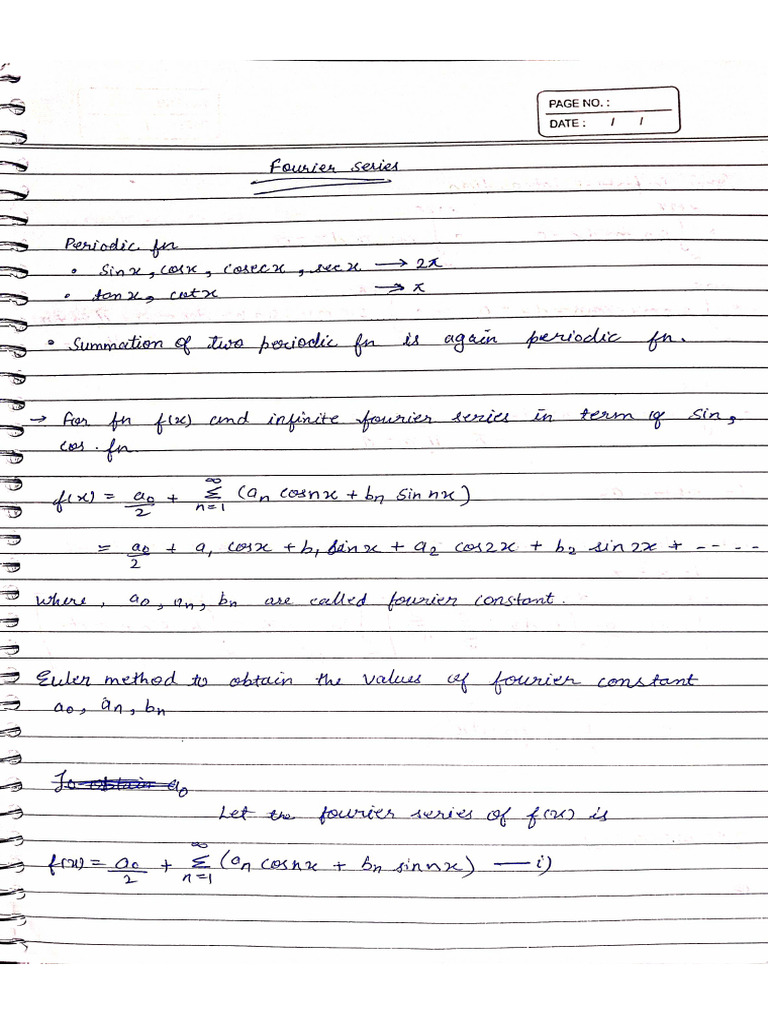 PAGE NO. :
DATE : / /
Fourier series
Periodic fn
• sinx, cosx, cosecx, secx → 2π
• tanx, cotx → π
• Summation of two periodic fn is again periodic fn.
→ For fn f(x) and infinite fourier series in term of sin,
cos. fn
f(x) = a₀/2 + ∞Σn=1 (aₙ cosnx + bₙ sin nx)
= a₀/2 + a₁ cosx + b₁ sinx + a₂ cos2x + b₂ sin2x + -----
where, a₀, aₙ, bₙ are called fourier constant.
Euler method to obtain the values of fourier constant
a₀, aₙ, bₙ
To obtain a₀
Let the fourier series of f(x) is
f(x) = a₀/2 + ∞Σn=1 (aₙ cosnx + bₙ sinnx) — i)